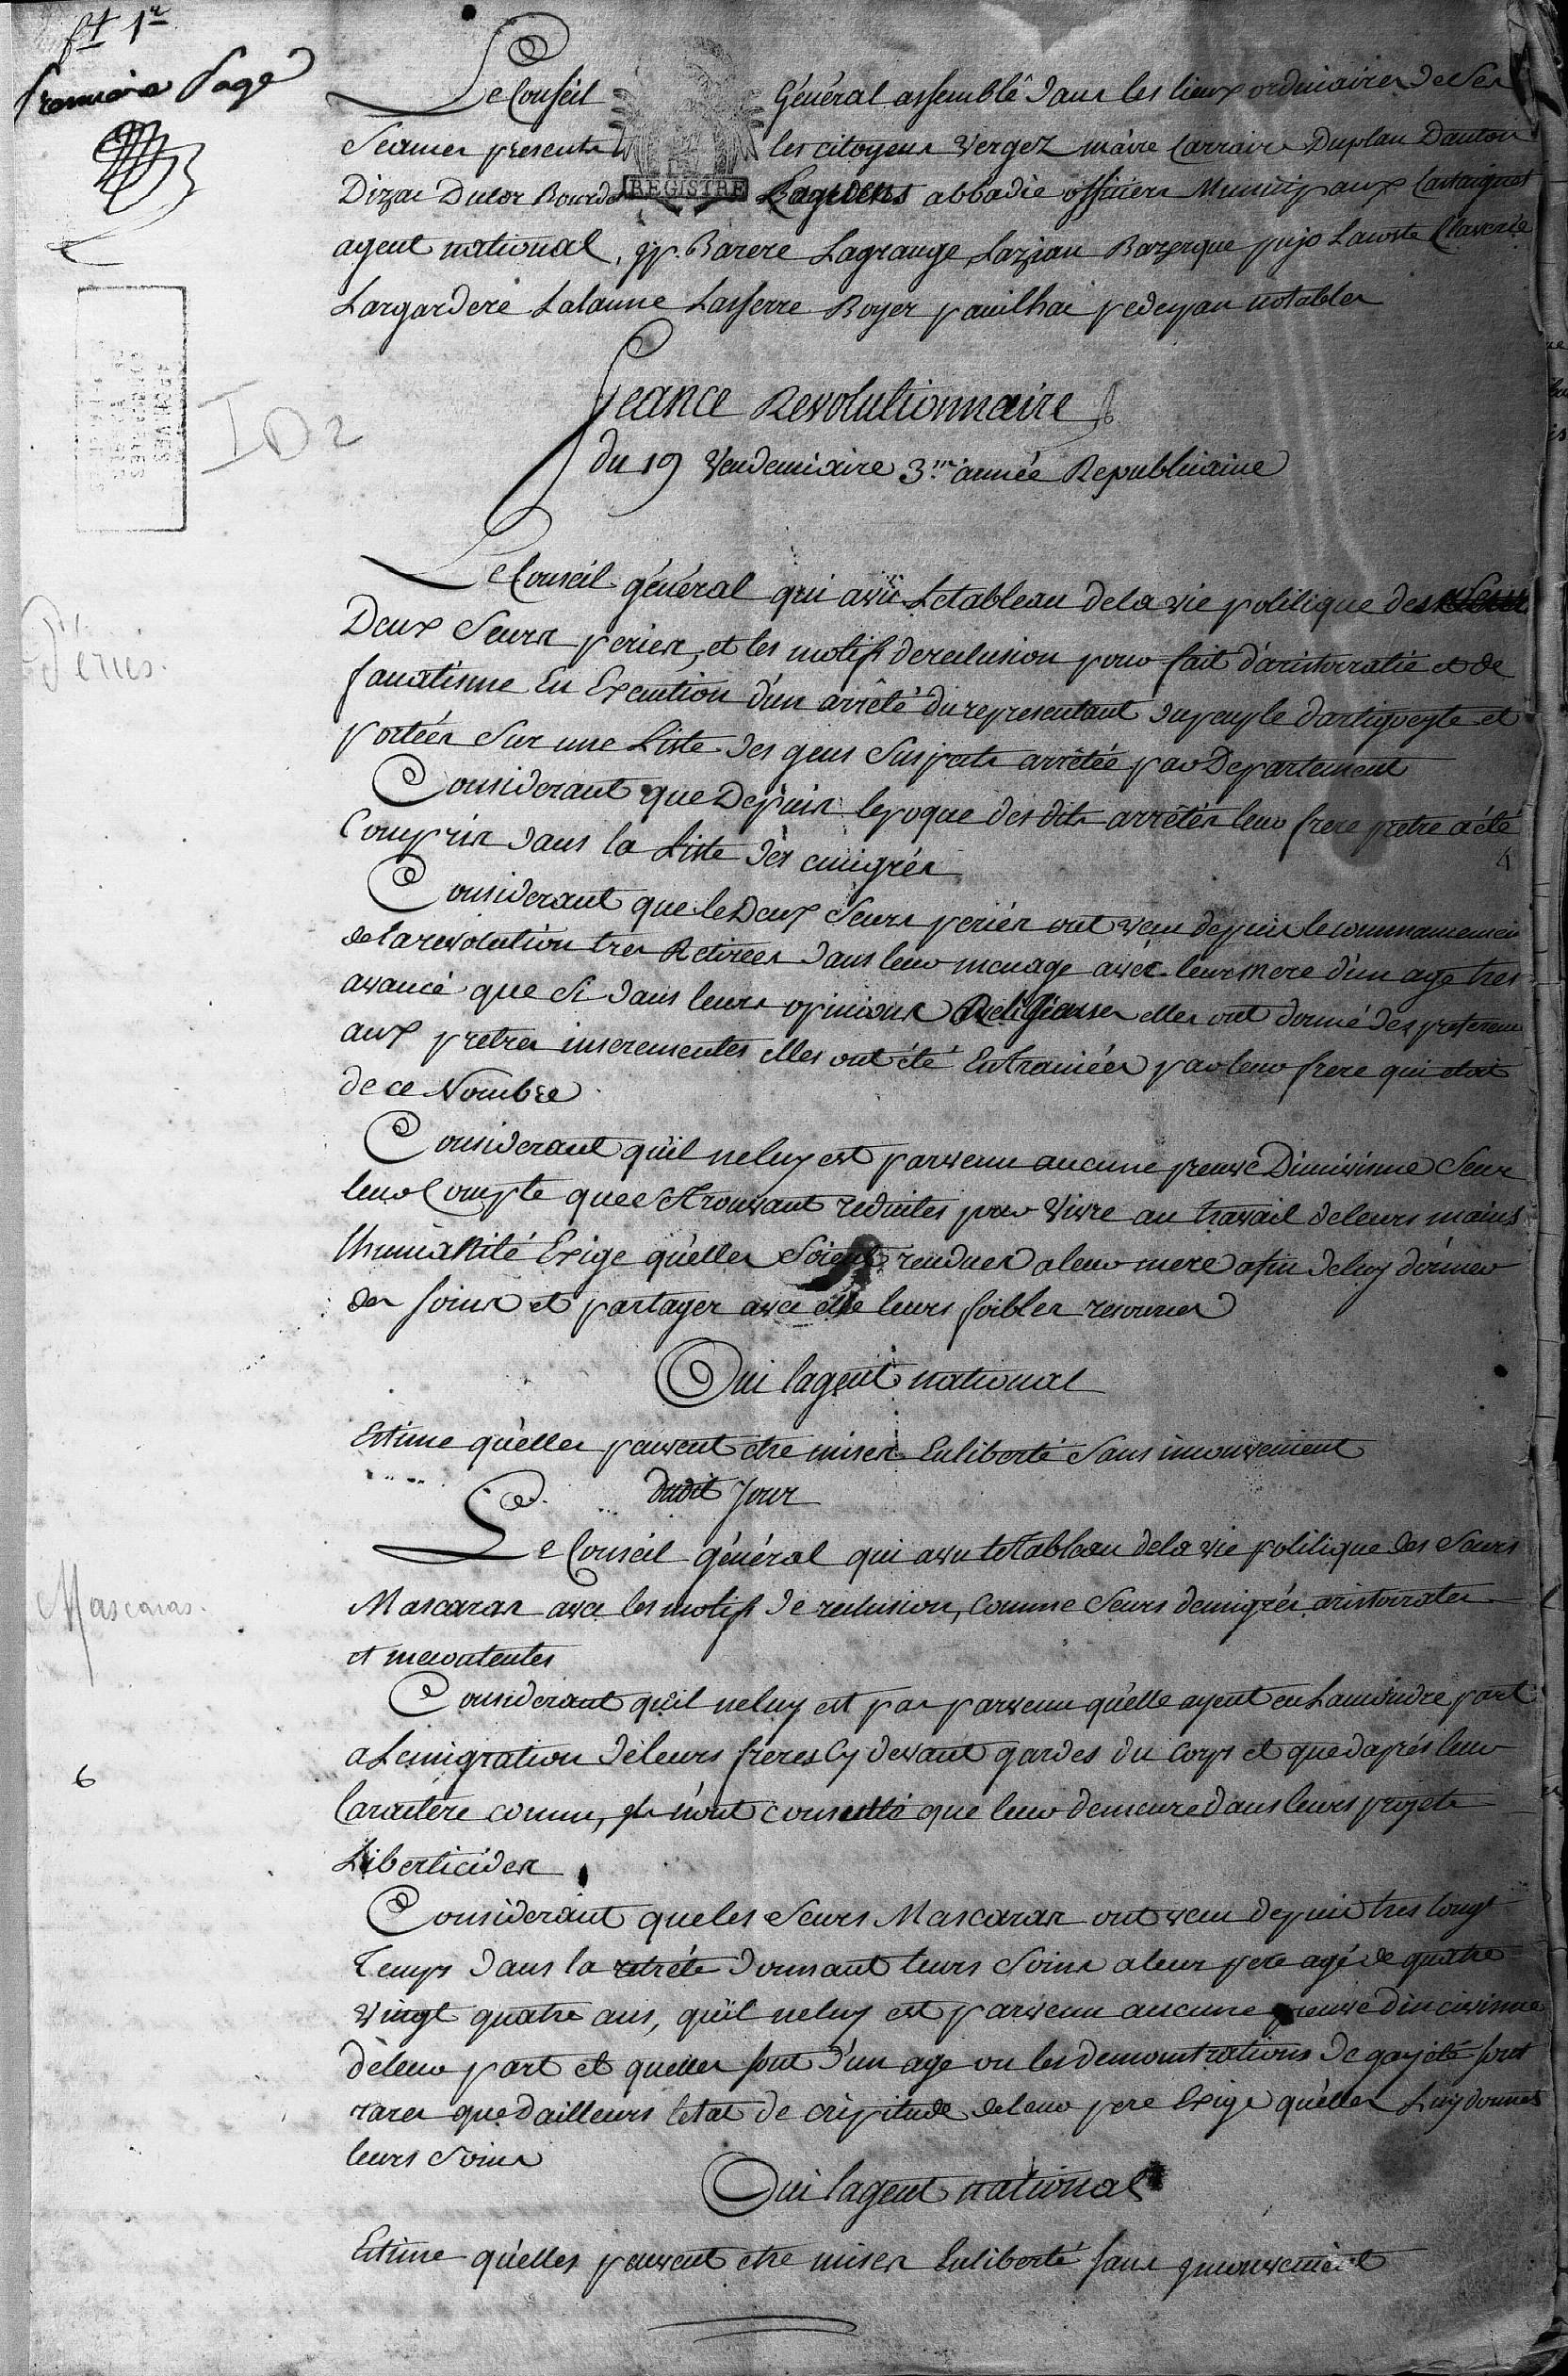 ft 1r
premiere page
Le Conseil Général assemblé dans les lieux ordinaires de Ses
Seances presents les citoyens Vergez maire Carraire Duplan Dantoin
Dizac Dulor REGISTRE abbadie officiers Municipaux Castaignet
agent national, gp. Barere Lagrange Lazian Bazerque pujo Lacoste Claverie
Largardere Lalanne Lasserre Boyer pauilhac pedepan notables
Seance Revolutionnaire
du 19 Vendemiaire 3.me année Republicaine
ID2
Le Conseil général qui a vu Le tableau de la vie politique des
Péries.
Deux Seurs periés, et les motifs de reclusion pour fait d'aristocratie et de
fanatisme En Execution d'un arrêté du representant du peuple dartigoeyte et
portées Sur une Liste des gens Suspects arrêtée par Departement
Considerant que Depuis lepoque des dits arrêtés leur frere pretre a été
Compris dans la Liste des emigrés
4
Considerant que le Deux Seurs periés ont vecu depuis le commancemen
de la revolution tres Retirées dans leur menage avec leur mere d'un age tres
avancé que Si dans leurs opinions Religieuses elles ont donné des preferences
aux pretres insermentes elles ont été Entrainées par leur frere qui etoit
de ce Nombre
Considerant qu'il ne luy est parvenu aucune preuve Dincivisme Seur
leur Compte que Se trouvant reduites pour Vivre au travail de leurs mains
l'humanité Exige qu'elles Soient rendues a leur mere afin de luy donner
des soins et partager avec elle leurs foibles resources
Oui lagent national
Estime qu'elles peuvent etre mises En liberté Sans inconvenient
dudit Jour
Le Conseil général qui a vu le tableau de la vie politique des Seurs
Mascaras.
Mascaras avec les motifs de reclusion, comme Seurs demigrés aristocrates
et mecontentes
Considerant qu'il ne luy est pas parvenu qu'elle ayent eu La moindre part
a Lemigration de leurs freres Cy devant gardes du corps et que daprés leur
6
Caractere connu, ils n'ont consulté que leur demeure dans leurs projets
Liberticides
Considerant que les Seurs Mascaras ont vecu depuis tres longt
Temps dans la retréte donnant leurs Soins a leur pere agé de quatre
vingt quatre ans, qu'il ne luy est parvenu aucune preuve dincivisme
de leur part et quelles sont d'un age ou les demonstrations de gayeté sont
rares que d'ailleurs letat de cripitude de leur pere Exige qu'elles Luy donnet
leurs Soins
Oui lagent national
Estime qu'elles peuvent etre mises En liberté sans inconvenient